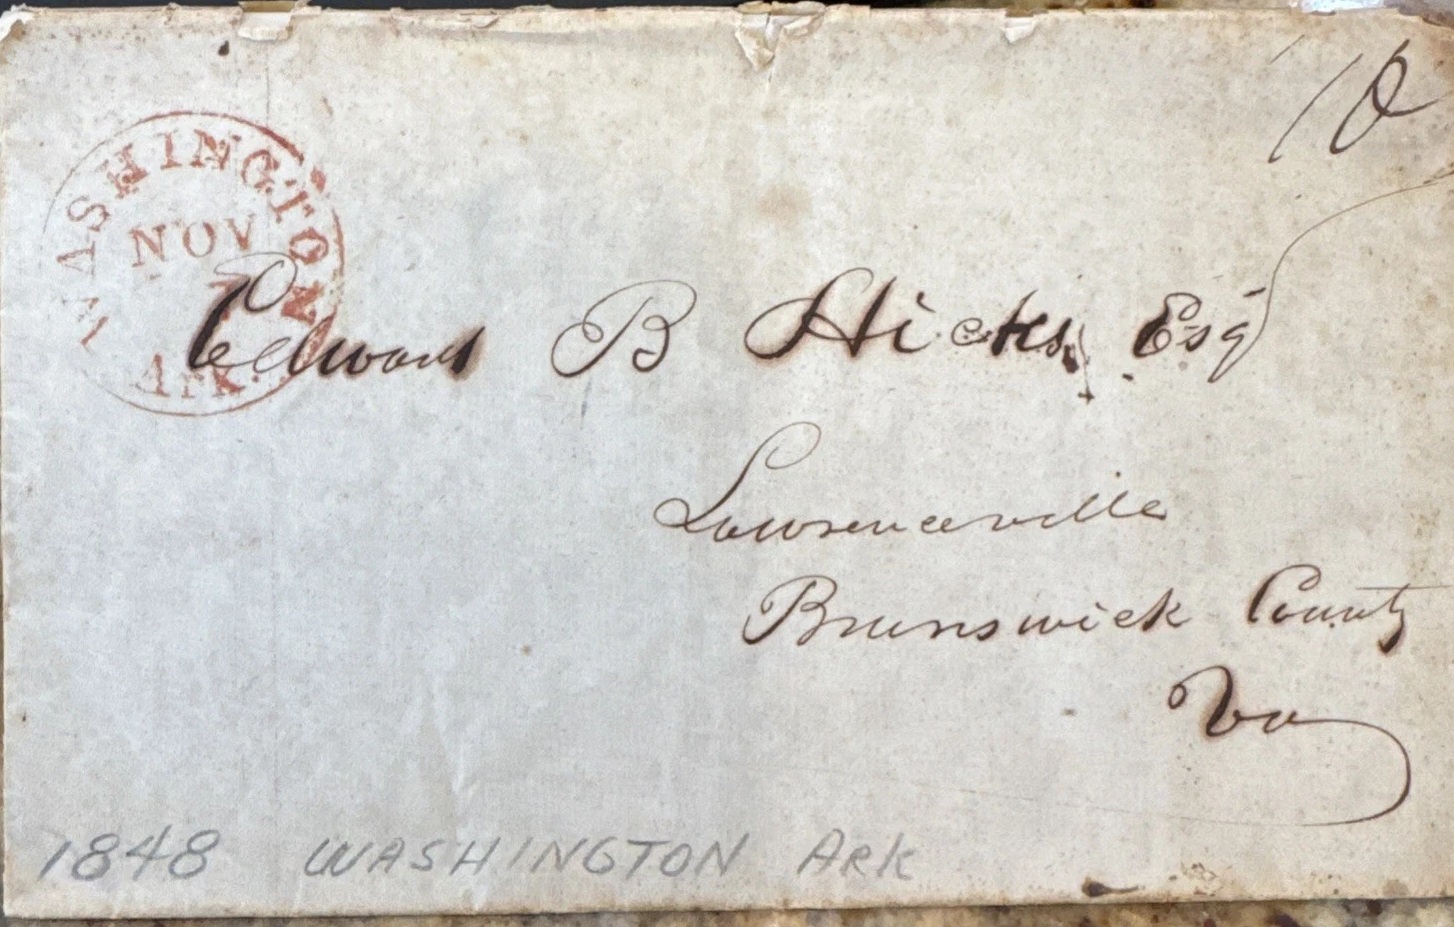 10
WASHINGTON
NOV
7
Ark.
Edward B Hicks, Esq
Lawrenceville
Brunswick County
Va
1848 WASHINGTON Ark